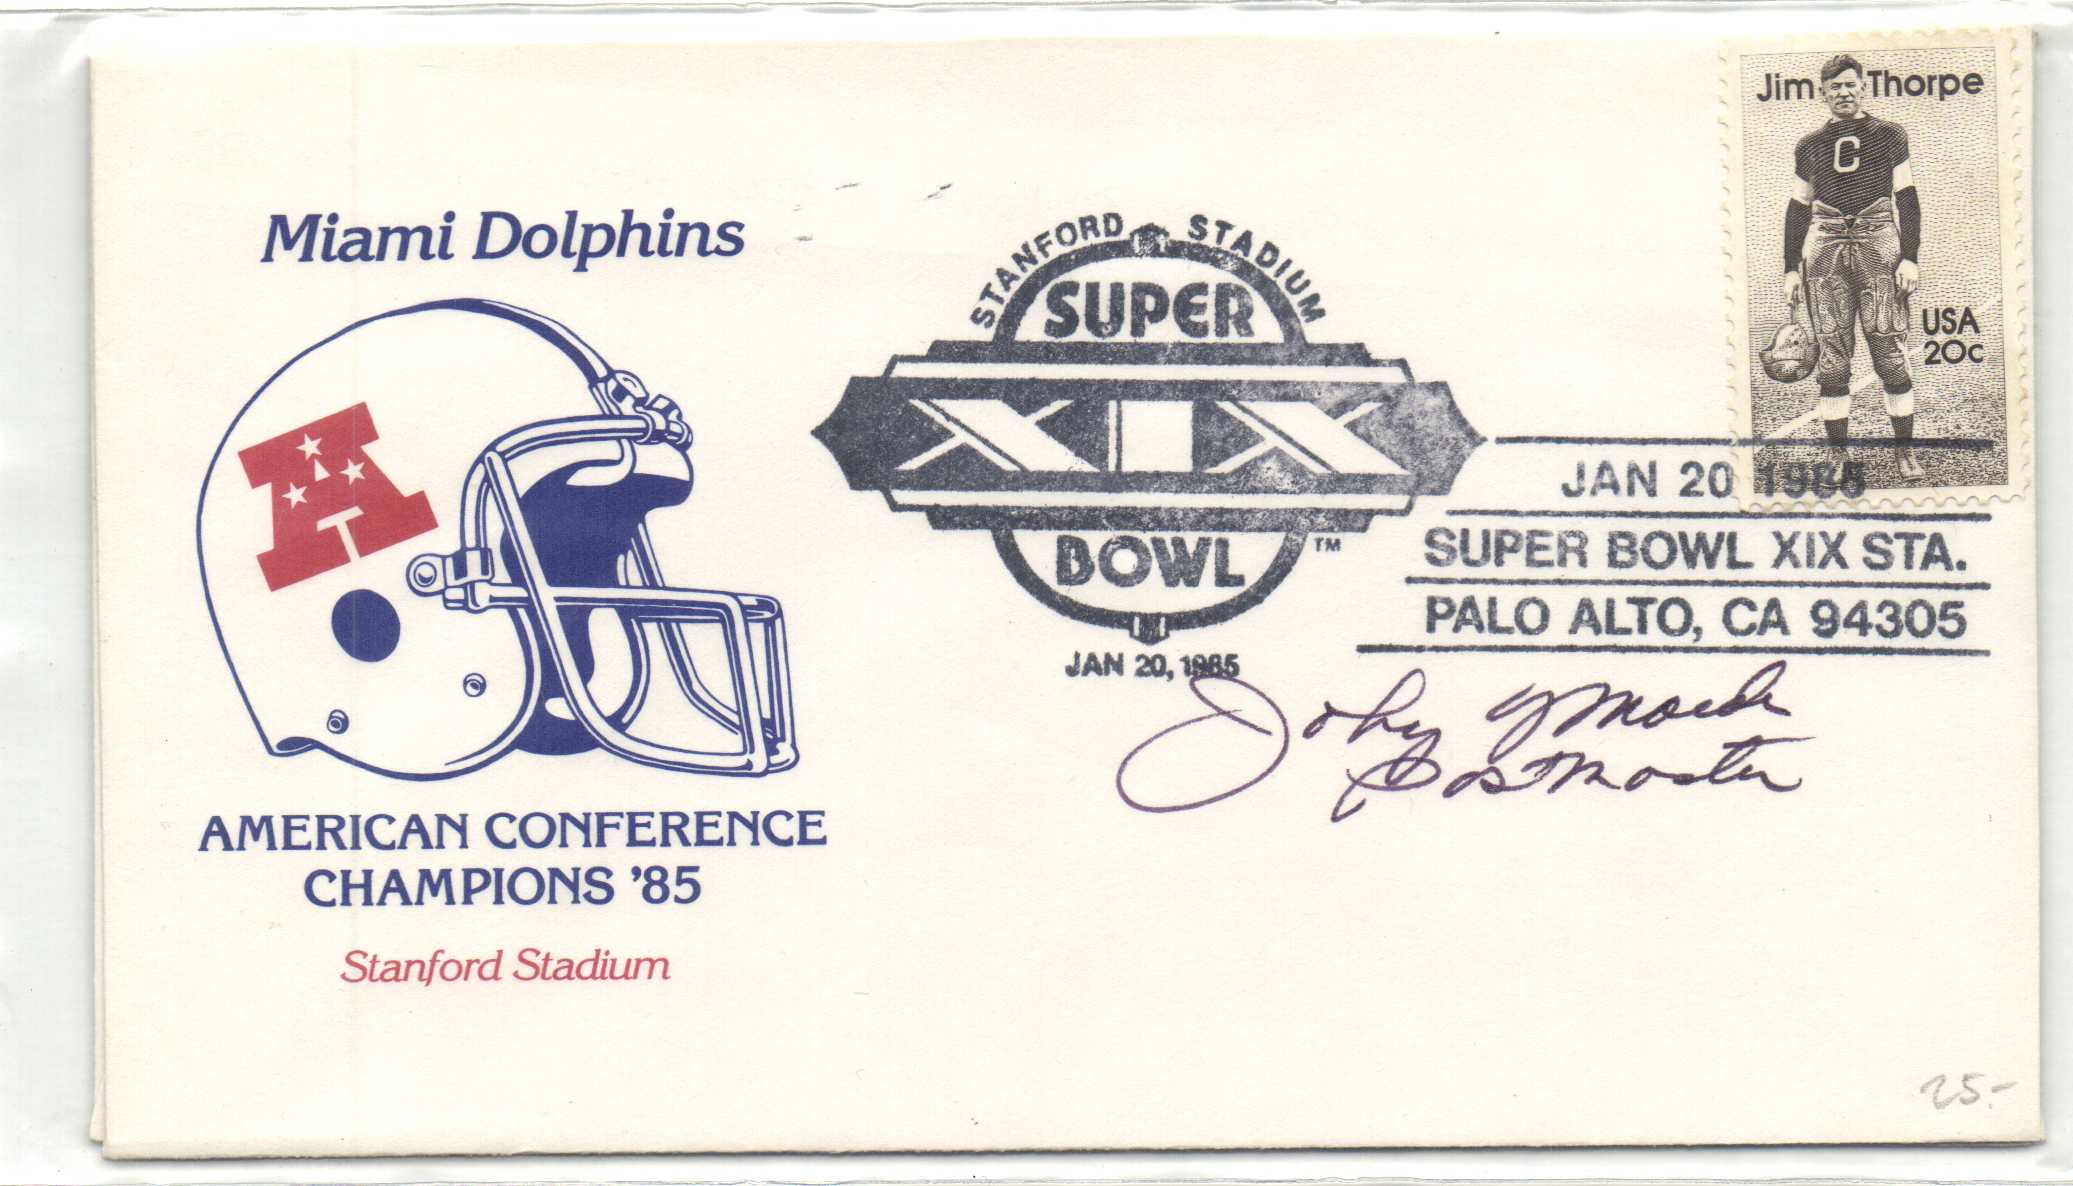 Miami Dolphins
AMERICAN CONFERENCE
CHAMPIONS '85
Stanford Stadium
STANFORD STADIUM
SUPER
XIX
BOWL
TM
JAN 20, 1985
Jim Thorpe
C
USA
20c
JAN 20 1985
SUPER BOWL XIX STA.
PALO ALTO, CA 94305
John
Postmaster
25.-